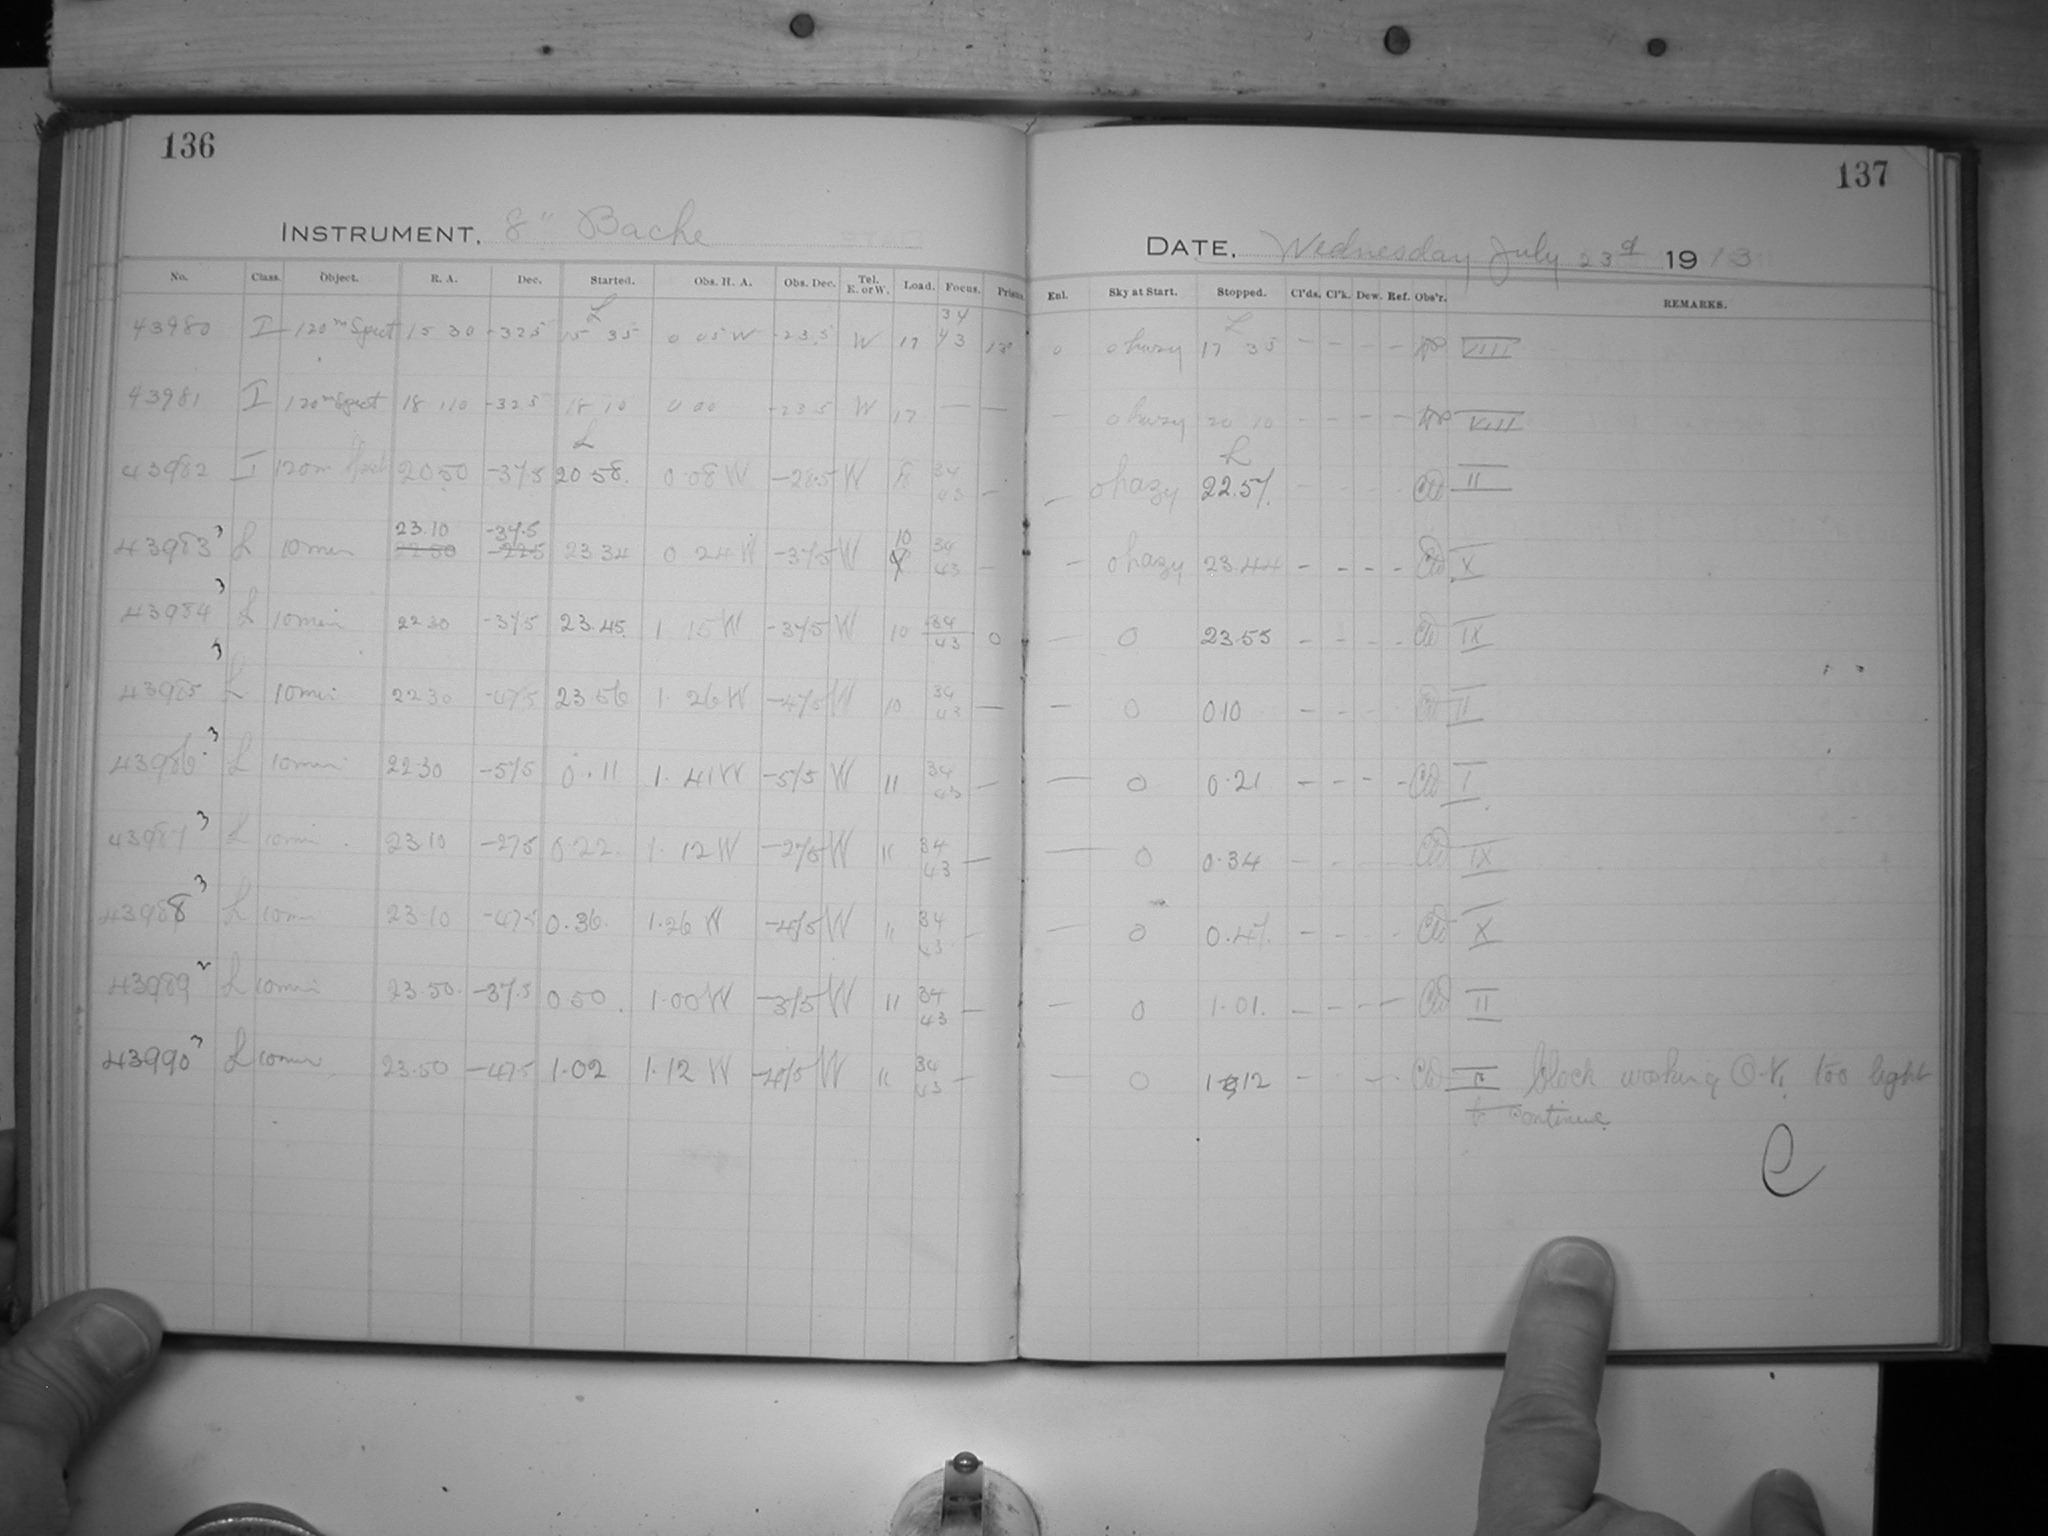 136
INSTRUMENT, 8" Bache
No. Class. Object. R. A. Dec. Started. Obs. H. A. Obs. Dec. Tel. E. or W. Load. Focus. Prism.
43980 I 120m Spect 15 30 -32.5 L 15 35 0 05 W -23.5 W 17 34 43
43981 I 120m Spect 18 10 -32.5 18 10 0 00 -23.5 W 17 — —
43982 I 120m Spect 20 50 -37.5 L 20 58. 0 08 W -28.5 W 34 43 —
43983 3 L 10 min 23.10 -37.5 23 34 0 24 W -37.5 W 10 34 43 —
43984 3 L 10 min 22 30 -37.5 23.45. 1 15 W -37.5 W 10 34 43 0
43985 3 L 10 min 22 30 -47.5 23 56 1. 26 W -47.5 W 10 34 43 —
43986 3 L 10 min 22 30 -57.5 0.11 1. 41 W -57.5 W 11 34 43 —
43987 3 L 10 min 23.10 -27.5 0.22. 1. 12 W -27.5 W 11 34 43 —
43988 3 L 10 min 23.10 -47.5 0.36. 1.26 W -47.5 W 11 34 43 —
43989 L 10 min 23.50. -37.5 0.50. 1.00 W -37.5 W 11 34 43 —
43990 3 L 10 min 23.50 -47.5 1.02 1.12 W -47.5 W 11 34 43 —
137
DATE, Wednesday July 23d 1913
Enl. Sky at Start. Stopped. Cl'ds. Cl'k. Dew. Ref. Obs'r. REMARKS.
0 0 hazy L 17 35 — — — — VIII
— 0 hazy 20 10 — — — — VIII
— 0 hazy L 22.57. — — — — II
— 0 hazy 23.44 — — — — X
— 0 23.55 — — — — IX
— 0 0 10 — — — — II
— 0 0.21 — — — — I
— 0 0.34 — — — — IX
— 0 0.47. — — — — X
— 0 1.01. — — — — II
— 0 1 12 — — — II Clock working O.K. too light
to continue.
C